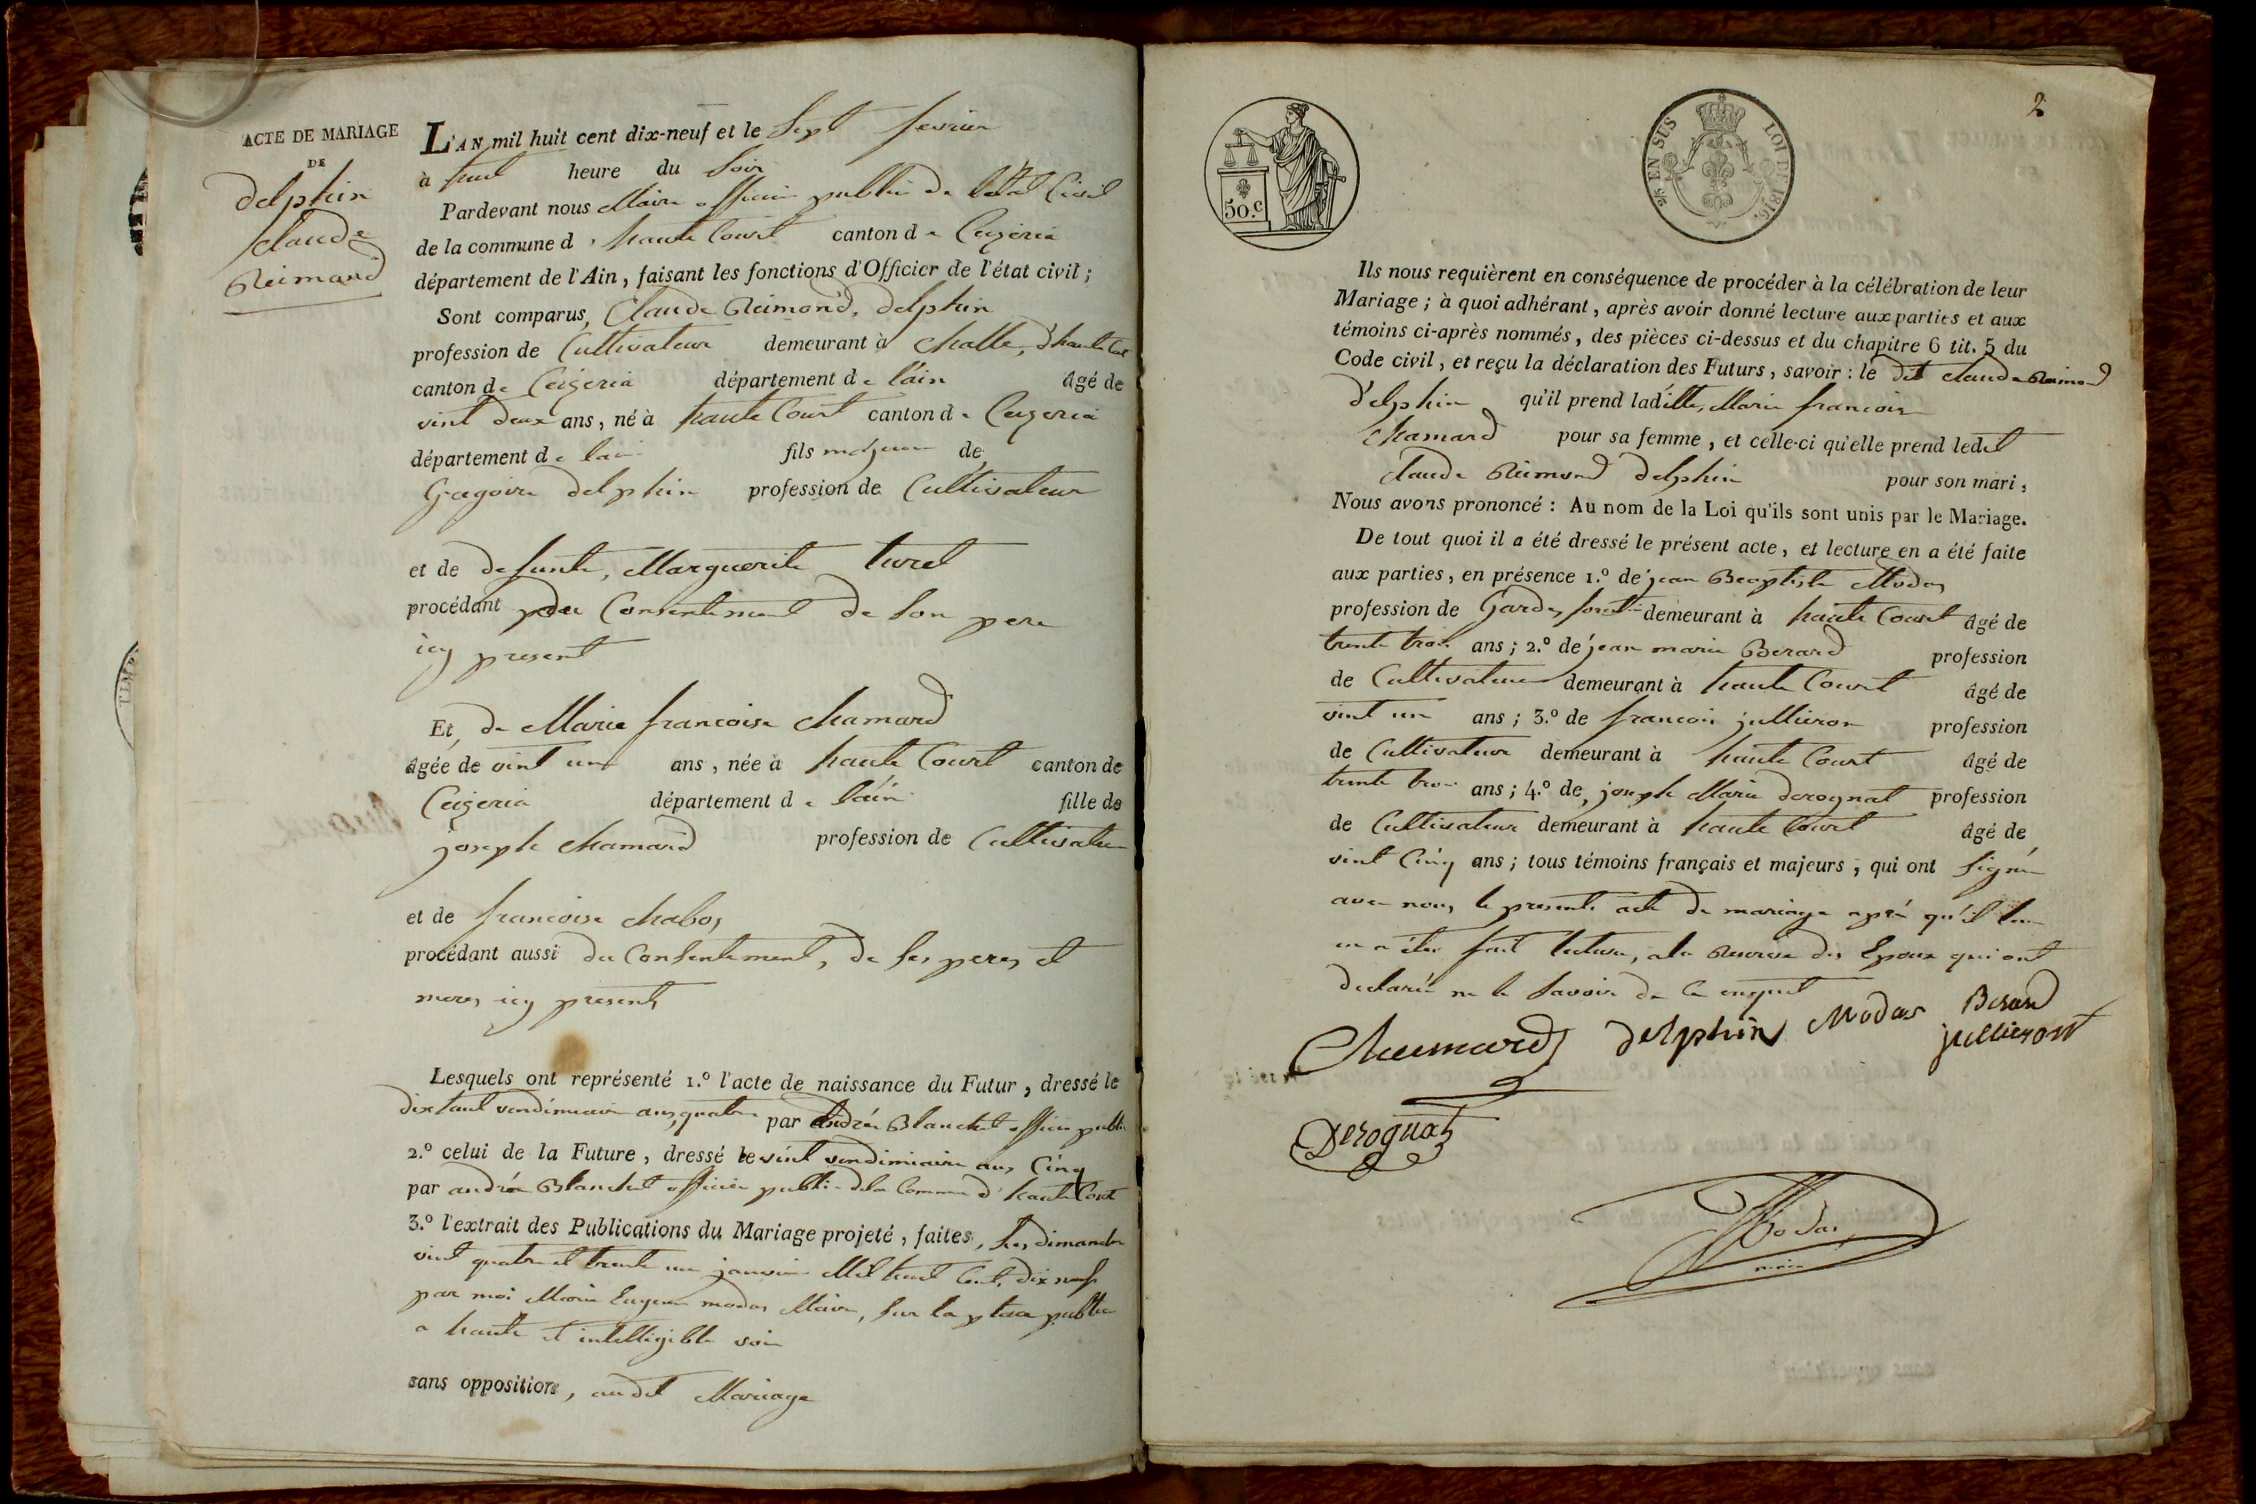 ACTE DE MARIAGE
DE
delphin
claude
Reimond
L'AN mil huit cent dix-neuf et le Sept fevrier
à huit heure du Soir
Pardevant nous Maire officier public de l'etat Civil
de la commune d'haute Court canton de Ceyzeria
département de l'Ain, faisant les fonctions d'Officier de l'état civil;
Sont comparus, Claude Reimond, delphin
profession de Cultivateur demeurant à challe, d'haute Cour
canton de Ceizeria département de l'ain âgé de
vint deux ans, né à haute Court canton de Ceyzeria
département de lain fils majeur de
Gregoire delphin profession de Cultivateur
et de defunte, Marguerite turel
procédant du Consentement de son pere
icy present
Et de Marie francoise chamard
âgée de vint un ans, née à haute Court canton de
Ceizeria département de láin fille de
joseph chamard profession de Cultivateur
et de francoise chabos
procédant aussi du Consentement, de ses peres et
meres icy presents
Lesquels ont représenté 1.º l'acte de naissance du Futur, dressé le
dix huit vendimiaire ans quatre par andré Blanchet officier public
2.º celui de la Future, dressé le vint vendimiaire ans Cinq
par andré Blanchet officier public de la Commune d'haute Court
3.º l'extrait des Publications du Mariage projeté, faites, les dimanche
vint quatre et trente un janvier Mil huit Cent dix neuf
par moi Marie Eugene modas Maire, sur la place public
a haute et intelligible voix
sans opposition, audit Mariage
2
50.c
2/c EN SUS
LOI DE 1816.
Ils nous requièrent en conséquence de procéder à la célébration de leur
Mariage; à quoi adhérant, après avoir donné lecture aux parties et aux
témoins ci-après nommés, des pièces ci-dessus et du chapitre 6 tit. 5 du
Code civil, et reçu la déclaration des Futurs, savoir: le dit claude Reimond
delphin qu'il prend ladítte, Marie francoise
chamard pour sa femme, et celle-ci qu'elle prend ledit
claude Reimond delphin pour son mari,
Nous avons prononcé: Au nom de la Loi qu'ils sont unis par le Mariage.
De tout quoi il a été dressé le présent acte, et lecture en a été faite
aux parties, en présence 1.º de jean Beaptiste Modas
profession de Gardes forestier demeurant à haute Court âgé de
trente trois ans; 2.º de jean marie Berard profession
de Cultivateur demeurant à haute Court âgé de
vint un ans; 3.º de francois jullieron profession
de Cultivateur demeurant à haute Court âgé de
trente trois ans; 4.º de, joseph Marie derognat profession
de Cultivateur demeurant à haute Court âgé de
vint Cinq ans; tous témoins français et majeurs, qui ont signé
avec nous le presente acte de mariage apré qu'il leur
en a étée fait lecture, a la reserve des Epoux qui ont
declarée ne le savoir de ce enquit
Chamard delphin Modas Berard
jullieront
Derognat
Modas
maire